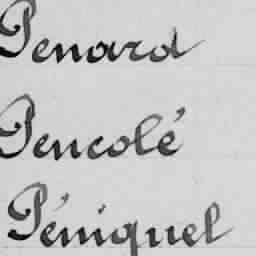 Penard
Pencolé
Péniquel